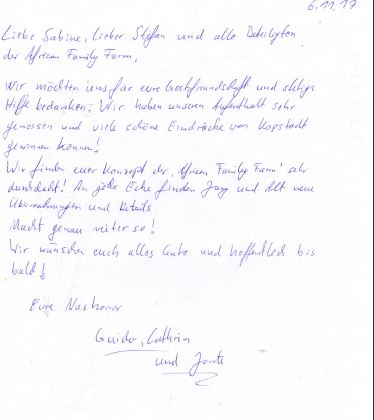 6.11.17
Liebe Sabine, Lieber Stefan und alle Beteiligten
der African Family Farm,
Wir möchten uns für eure Gastfreundschaft und stetige
Hilfe bedanken. Wir haben unseren Aufenthalt sehr
genossen und viele schöne Eindrücke von Kapstadt
gewinnen können!
Wir finden euer Konzept der "African Family Farm" sehr
durchdacht! An jeder Ecke finden Jung und Alt neue
Überraschungen und Details.
Macht genau weiter so!
Wir wünschen euch alles Gute und hoffentlich bis
bald!
Eure
Guido, Cathrin
und